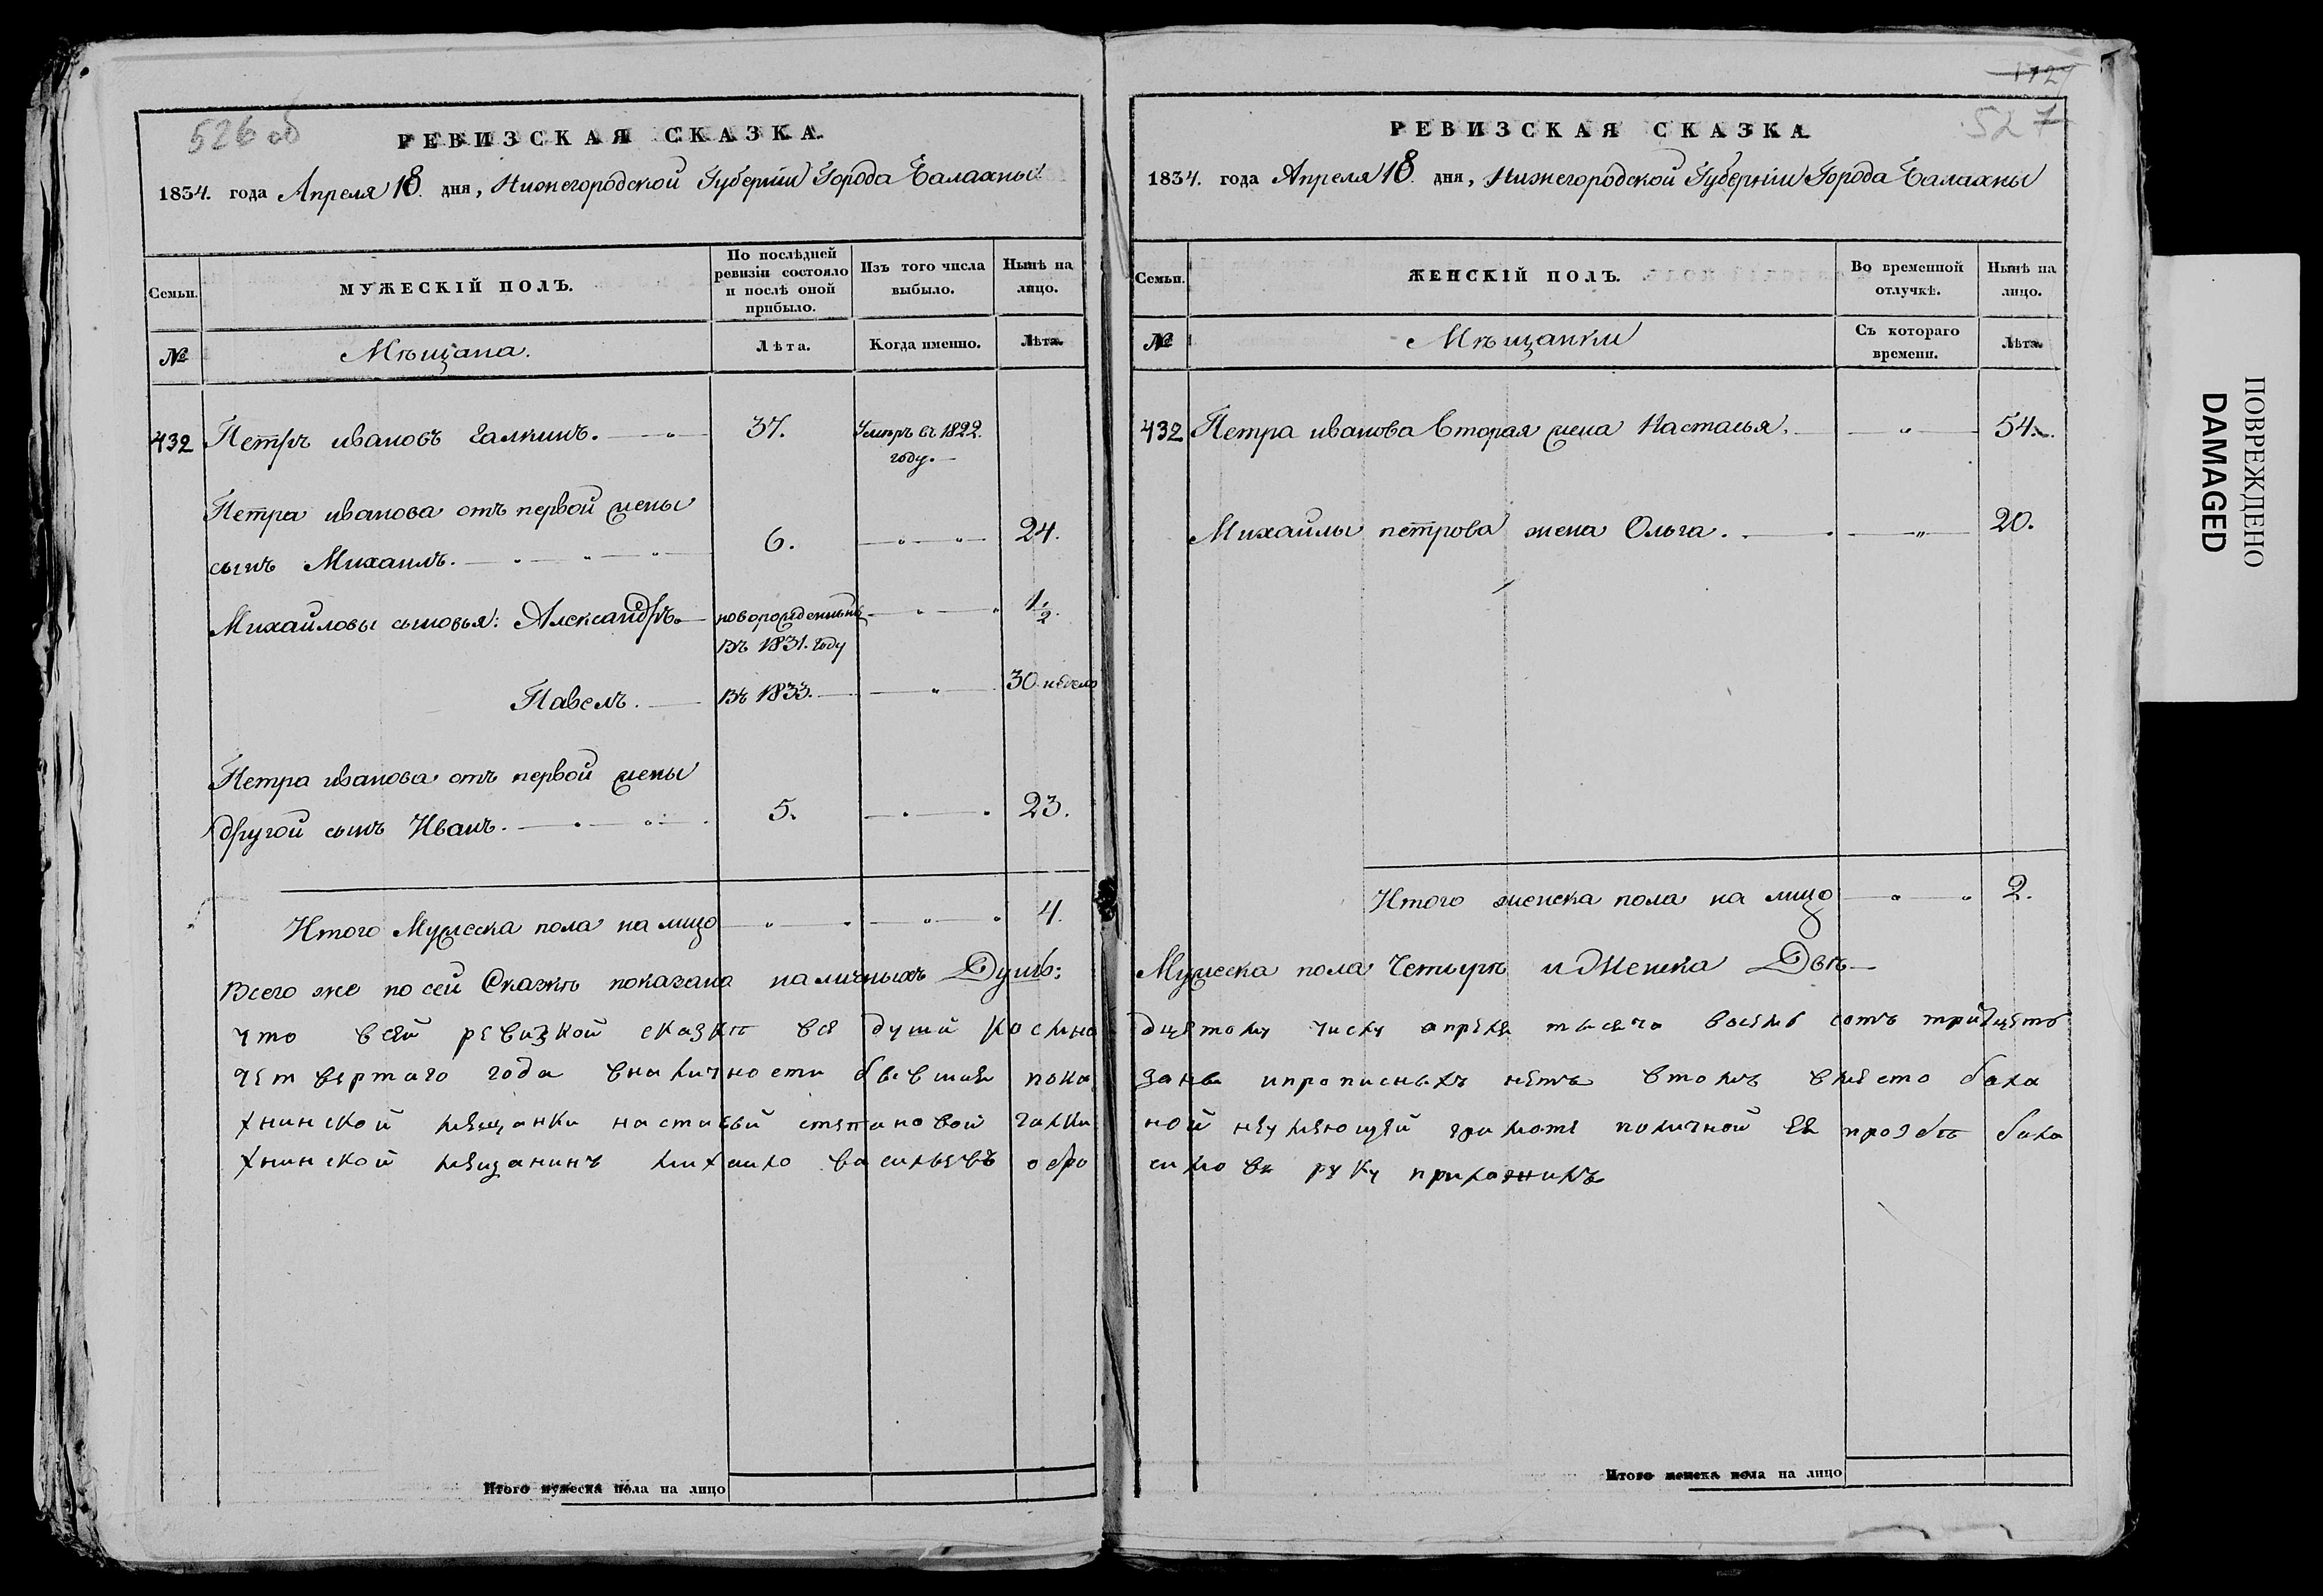 526 об
РЕВИЗСКАЯ СКАЗКА.
1834. года Апреля 18. дня, Нижегородской Губернiи Города Балахны
Семьи.
МУЖЕСКIЙ ПОЛЪ.
По послѣдней ревизiи состояло и послѣ оной прибыло.
Изъ того числа выбыло.
Нынѣ на лицо.
№
Мѣщана.
Лѣта.
Когда именно.
Лѣта.
432 Петръ ивановъ Галкинъ. 37. Умеръ въ 1822.
году.
Петра иванова отъ первой жены
сынъ Михаилъ. 6. 24.
Михайловы сыновья: Александръ. новорожденный 1 1/2.
въ 1831. году
Павелъ. въ 1833. 30 недель
Петра иванова отъ первой жены
другой сынъ Иванъ. 5. 23.
Итого Мужеска пола на лицо 4.
Всего же по сей Скажѣ показано наличныхъ Душъ:
что всей ревизкой сказкѣ все души космно
четвертаго года вналичности бывшае пока
хнинской мещанки настасьи степановой галки
хнинской мещанинъ михаило васильевъ обро
Итого мужеска пола на лицо
1127
527
РЕВИЗСКАЯ СКАЗКА
1834. года Апреля 18. дня, Нижегородской Губернiи Города Балахны
Семьи.
ЖЕНСКIЙ ПОЛЪ.
Во временной отлучкѣ.
Нынѣ на лицо.
№
Мѣщанки
Съ котораго времени.
Лѣта.
432 Петра иванова вторая жена Настасья. 54.
Михайлы петрова жена Ольга. 20.
Итого женска пола на лицо 2.
Мужеска пола Четыре и Женска Двѣ
дцетому числу апреля тысеча восемь сотъ тридцеть
заны ипрописныхъ нетъ втомъ вместо бала
ной неумеющей грамоте поличной ее прозбѣ бала
симовъ руку приложилъ
Итого женска пола на лицо
ПОВРЕЖДЕНО
DAMAGED